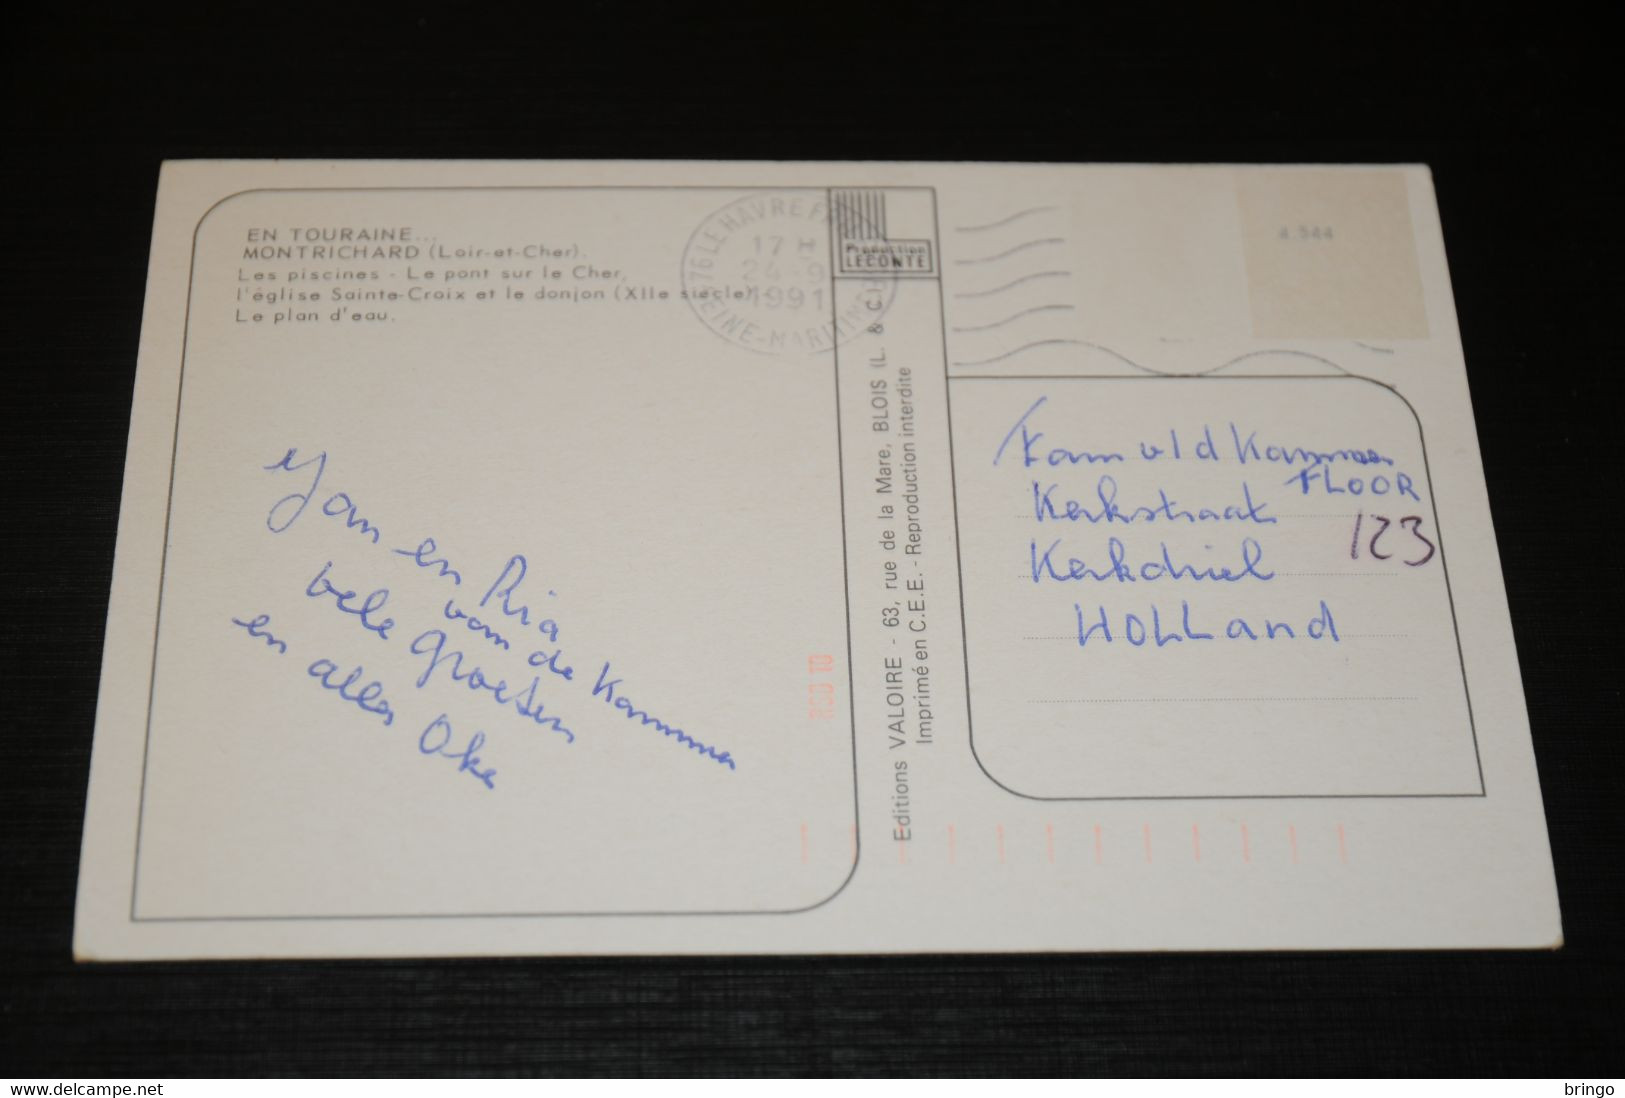 EN TOURAINE...
MONTRICHARD (Loir-et-Cher).
Les piscines - Le pont sur le Cher,
l'église Sainte-Croix et le donjon (XIIe siècle) -
Le plan d'eau.
76 LE HAVRE
17 H
24 - 9
1991
SEINE-MARITIME
Production
LECONTE
4.544
Jan en Ria
van de Kammen
vele groeten
en alles Oke
Editions VALOIRE - 63, rue de la Mare, BLOIS (L. & C.)
Imprimé en C.E.E. - Reproduction interdite
Fam v/d Kammen
FLOOR
Kerkstraat
123
Kerkdriel
HOLLand
www.delcampe.net
bringo